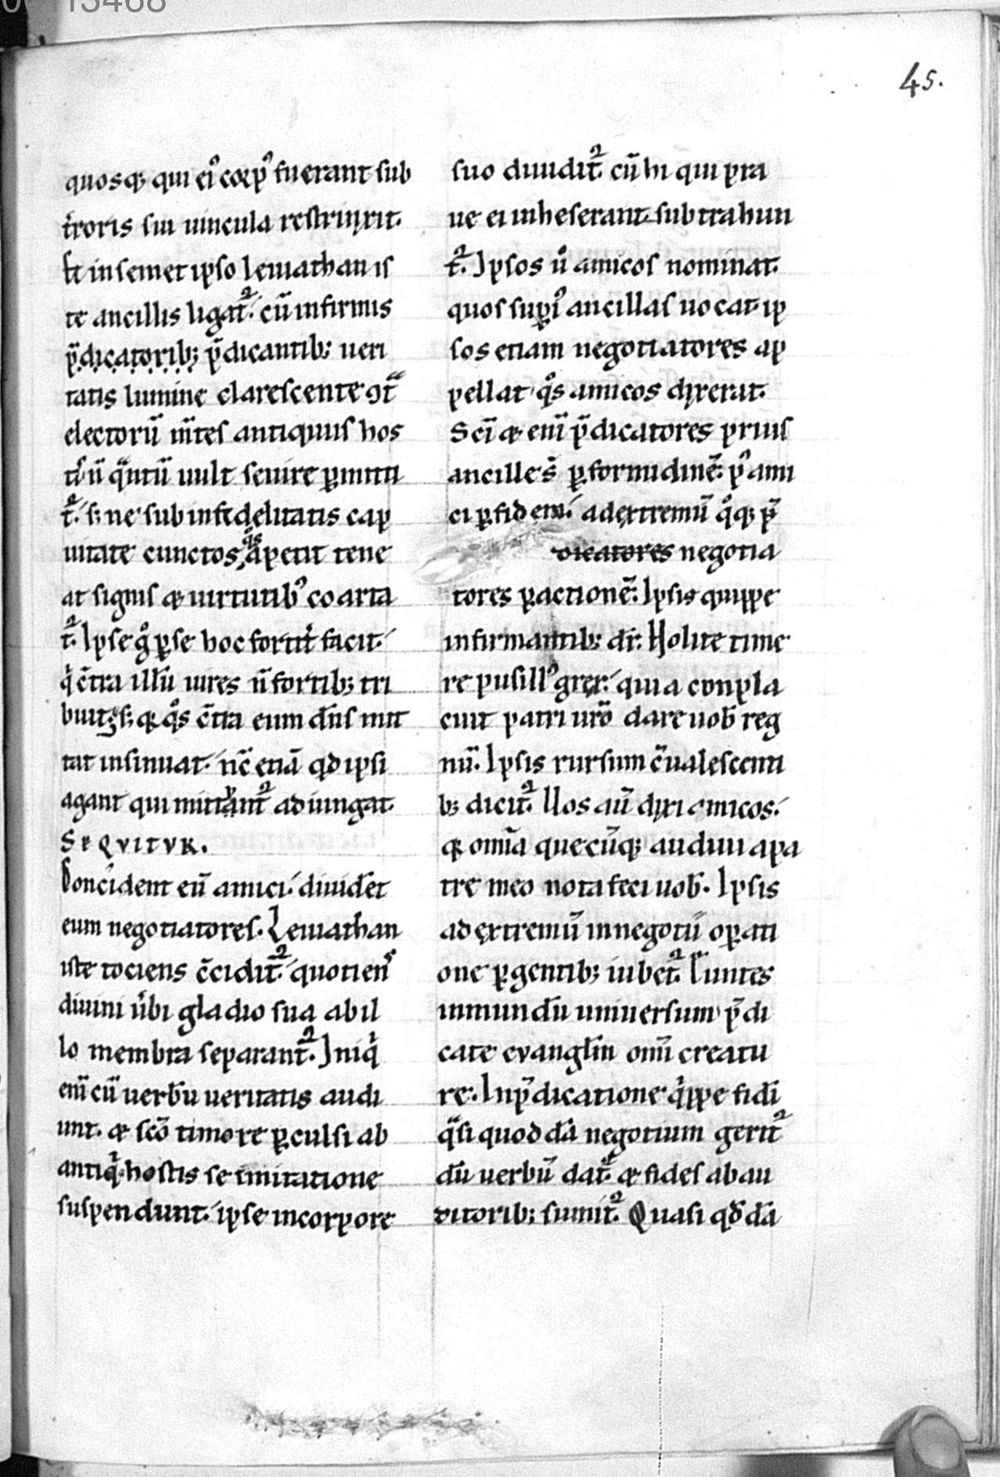 45.
quosq; qui ei᾽ corp᾽ fuerant sub
t̄roris sui uincula restrinxit.
Et in semet ipso leuiathan is
te ancillis ligat᷑. cū infirmis
p̄dicatorib; p̄dicantib; ueri
tatis lumine clarescente ꝯt̄
electorū m̄tes antiquus hos
q̄ntū uult seuire ꝑmitti
t᷑. s; ne sub infidelitatis cap
uitate cunctos q̊s apetit tene
at signis & uirtutib᾽ coarta
t᷑. Ipse g̊ ꝑ se hoc fortit̄ facit.
q̇ c̄tra illū uires n̄ fortib; tri
buit. s; & q̊s c̄tra eum dn̄s mit
tat insinuat. nc̄ etiā qd ipsi
agant qui mittant᷑ adiungat.
SEQVITVR.
Concident eū amici. diuident
eum negotiatores. Leuiathan
iste tociens c̄cidit᷑ quotiens
diuini ūbi gladio sua ab il
lo membra separant᷑. Iniq̇
eni cū uerbū ueritatis audi
unt. & scō timore ꝑculsi ab
antiq̇ hostis se imitatione
suspendunt. ipse in corpore
suo diuidit᷑. cū hi qui pra
ue ei inheserant subtrahun
t᷑. Ipsos ū amicos nominat.
quos supi᾽ ancillas uocat. ip
sos etiam negotiatores ap
pellat q̊s amicos dixerat.
Sci & eni p̄dicatores prius
ancille s̄ ꝑ formidinē. p᾽ ami
ci ꝑ fidem. ad extremū q̊q; p̄
dicatores negotia
tores ꝑ actionē. Ipsis quippe
infirmantib; dr̄. Nolite time
re pusill᾽ grex. quia conpla
cuit patri uro dare uob reg
nū. Ipsis rursum c̄ualescenti
b; dicit᷑. Uos aū dixi amicos.
& omia quecūq; audiui a pa
tre meo nota feci uob. Ipsis
ad extremū in negotii oꝑati
one ꝑgentib; iubet᷑. Euntes
in mundū uniuersum p̄di
cate evangliū omi creatu
re. In p̄dicatione q̇ppe fidei
q̄si quoddā negotium gerit᷑
dū uerbū dat᷑. & fides ab au
ditorib; sumit᷑. Quasi qd dā